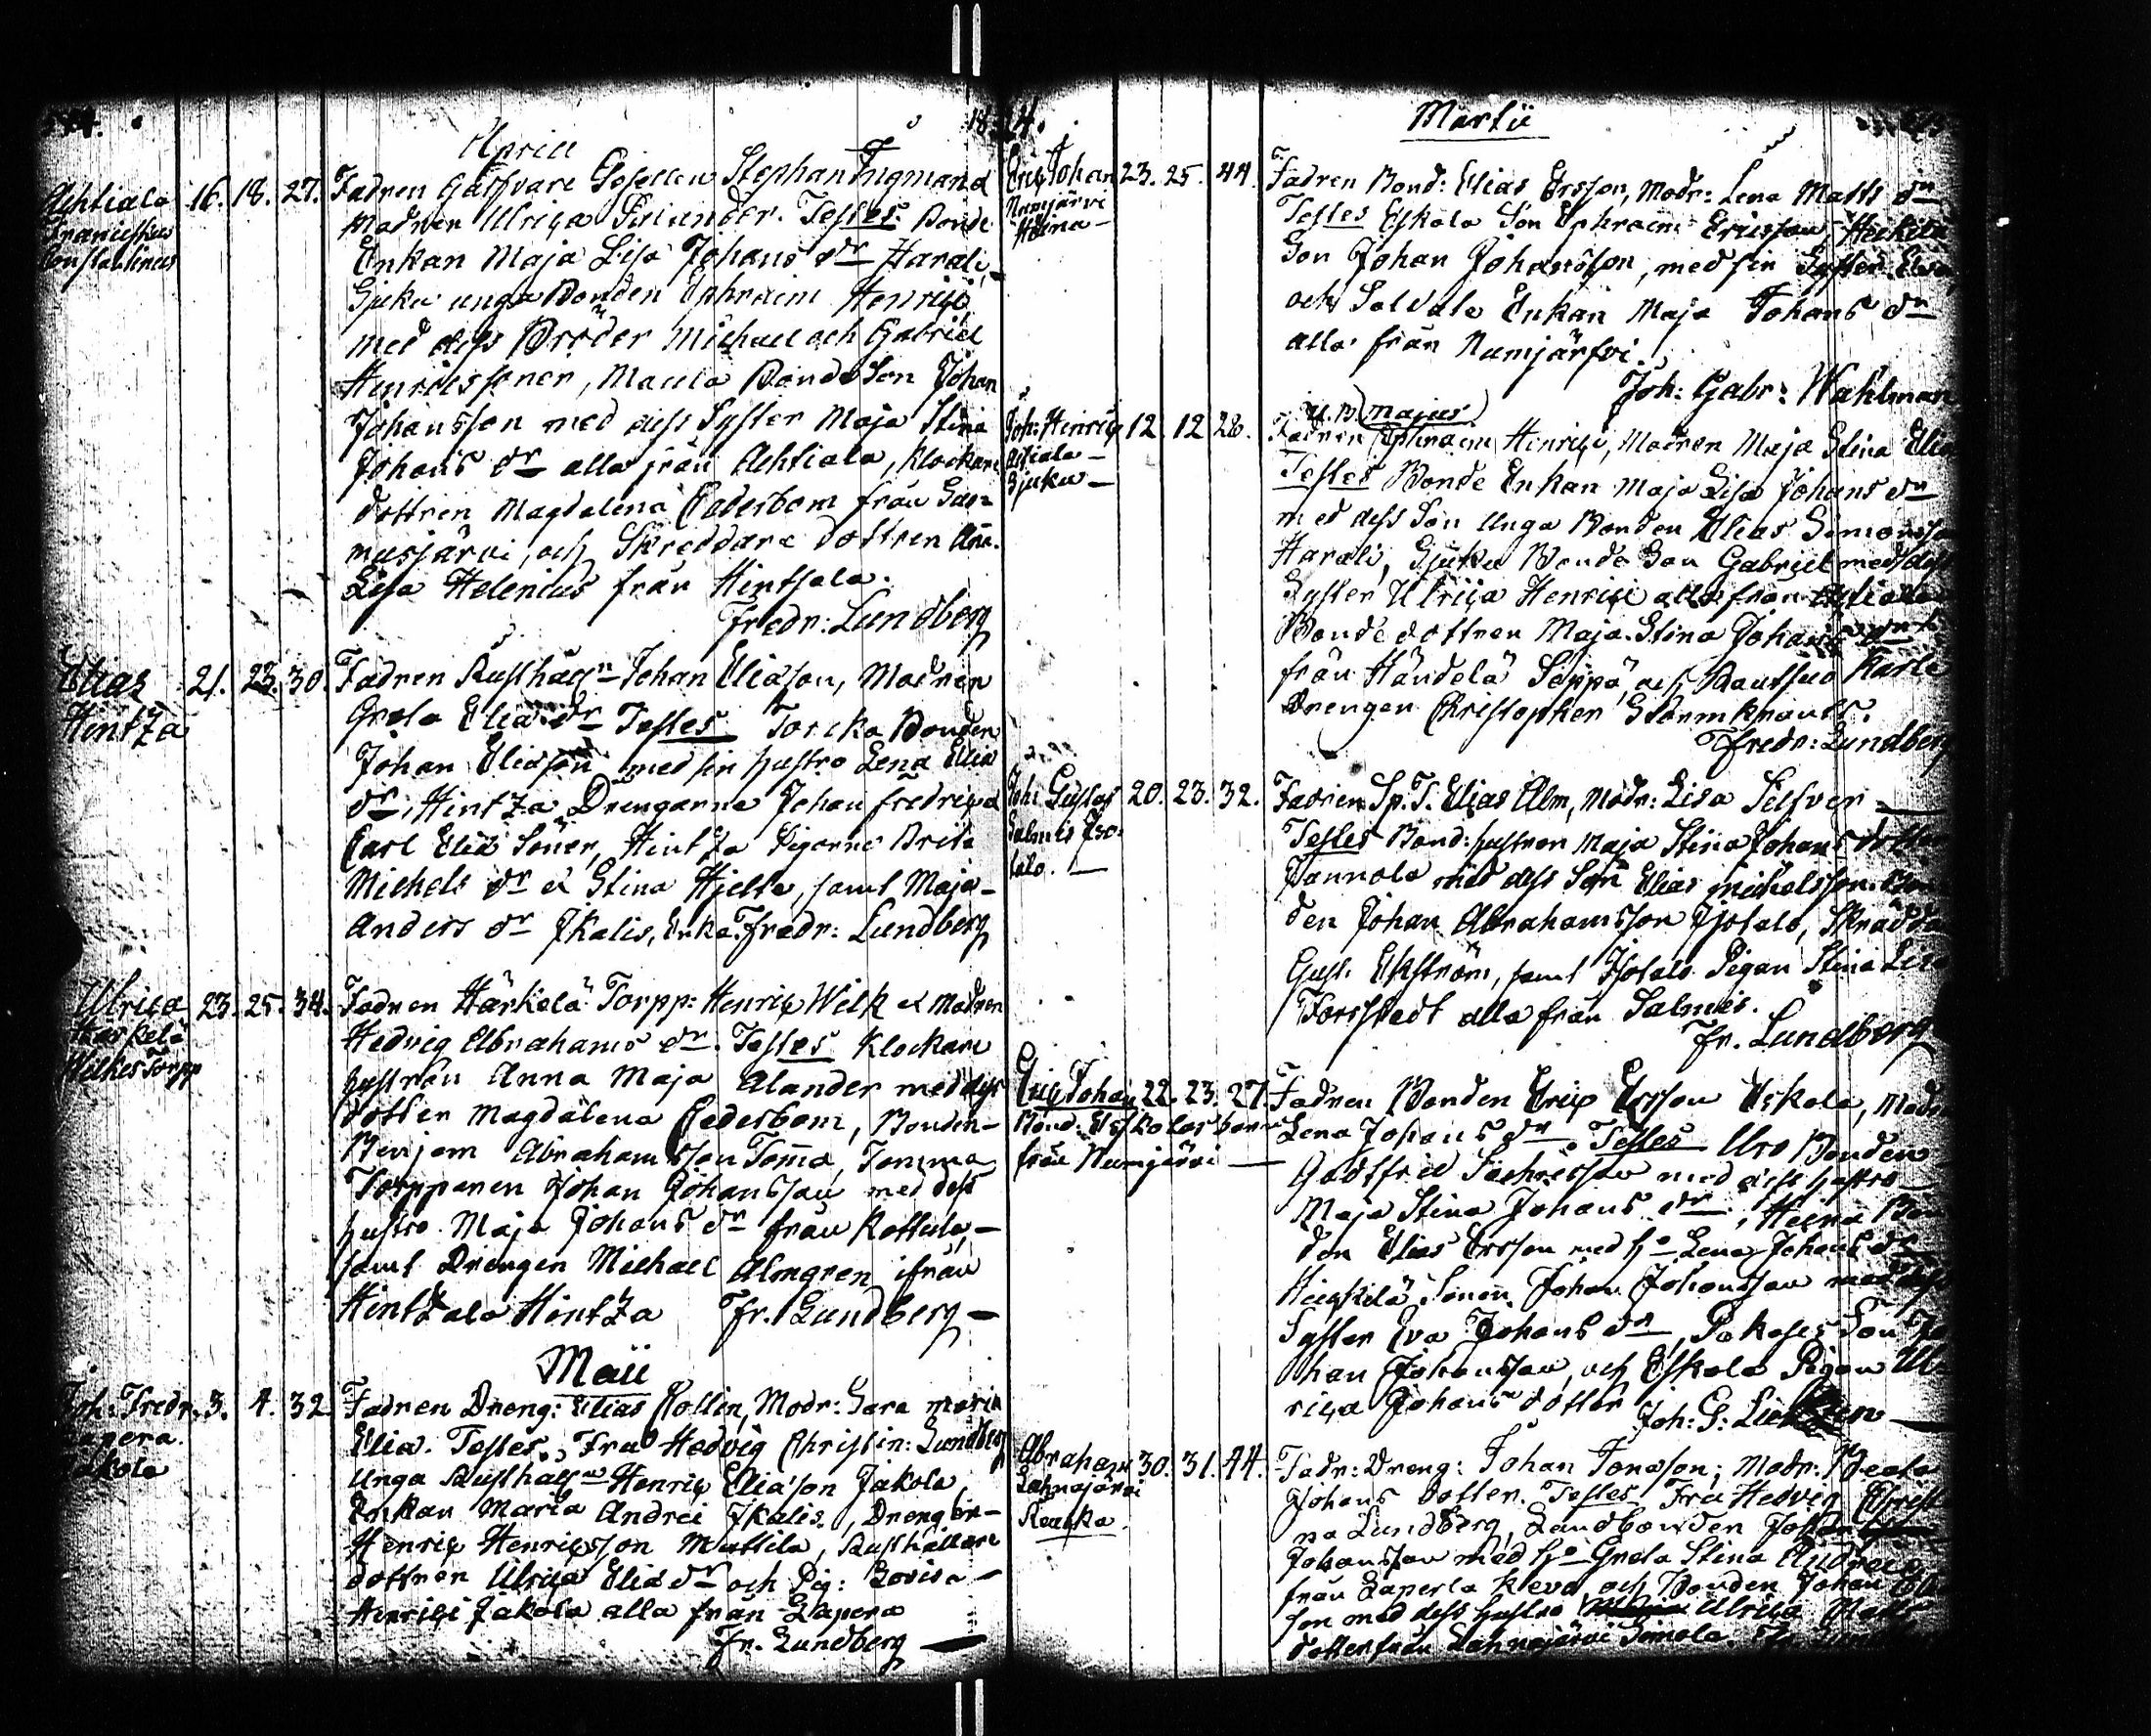 Aprill
Achtiala 16. 18. 27. Fadren Garfvare Gesellen Stephan Ingman &
Franciskus Modren Ulrica Selander. Testes Bonde
Constantinus Enkan Maja Lisa Johans dr Harali,
Gjuku unga Bonden Ephraim Henrici
med dess Bröder Michael och Gabriel
Henricssoner, Maula Bonde Son Johan
Johansson med dess Syster Maja Stina
Johans dr alla från Achtiala, Klockare
dottren Magdalena Cederbom från Sar-
musjärvi, och Skreddare dottren Ana
Lisa Helenius från Hintsala.
Fredr: Lundberg
Elias 21. 23. 30. Fadren Rusthålln Johan Eliason, Modren
Hintza Greta Elia dr Testes Torcka Bonden
Johan Eliason med sin hustro Lena Elia
dr, Hintza Drengarne Johan Fredric &
Carl Elia Söner, Hintza Pigorne Brita
Michels dr & Stina Hjelte, samt Maja
Anders dr Ikalis, Enka. Fredr: Lundberg
Ulrica 23. 25. 34. Fadren Härkelä Torpp: Henric Wilk & Modren
Härkelä Hedvig Abrahams dr. Testes Klockare
Wilkes Torpp hustron Anna Maja Alander med dess
dotter Magdalena Cederbom, Bonden
Benjam Abrahamsson Toma, Tomma
Torpparen Johan Johansson med dess
hustro Maja Johans dr från Kottula,
samt Drengen Michael Almgren ifrån
Hintzala Hintza Fr. Lundberg
Maii
Joh: Fredr. 3. 4. 32. Fadren Dreng: Elias Rollin, Modr: Sara Maria
Lapera Elia. Testes, Fru Hedvig Christin: Lundberg
Jakola Unga Rusthålln Henric Eliason Jakola,
Enkan Maria Andrei Ikalis, Drengen
Henric Henricsson Mattila, Rusthållare
dottren Ulrica Elia dr och Pig: Lovisa
Henrici Jakola alla från Lapera
Fr. Lundberg
1814.
Martii
Eric Johan 23. 25. 44. Fadren Bond: Elias Ersson, Modr: Lena Matts dr
Numjärvi Testes Eskola Son Ephraim Ericsson Heikilä
Heina Son Johan Johansson, med sin Syster Eva,
och Soldate Enkan Maja Johans dr
alla från Numjärfvi.
Joh: Gabr: Wahlman
N.B. (majus)
Joh: Henric 12. 12. 28. Fadren Ephraim Henrici, Modren Maja Stina Elia
Achtiala Testes Bonde Enkan Maja Lisa Johans dr
Gjuku med dess Son Unga Bonden Elias Simonsson
Harali, Gjuku Bonde Son Gabriel med dess
Syster Ulrica Henrici alla från Achtiala
Bonde dottren Maja Stina Johans dr
från Händelä Seppä, och Rautsuo Karla
Drengen Christopher Stormkrantz.
Fredr: Lundberg
Joh: Gustaf 20. 23. 32. Fadren Sp. T. Elias Alm, Modr: Lisa Selfver
Salmis Iso- Testes Bond: hustron Maja Stina Johans dotter
talo. Vannola med dess Son Elias Michelsson. Bon
den Johan Abrahamsson Isotalo, Skräddar
Gust. Ekström, samt Isotalo Pigan Stina Lisa
Forsstedt alla från Salmis.
Fr. Lundberg
Eric Johan 22. 23. 27. Fadren Bonden Eric Ersson Eskola, Modr
Bond: Eskolas barn Lena Johans dr. Testes Uro Bonden
från Numjärvi Godtfried Sachrisson med dess hustro
Maja Stina Johans dr, Heina Bon
den Elias Ersson med ho Lena Johans dr
Heickilä Sonen Johan Johansson med dess
Syster Eva Johans dr, Pakases Son Jo
han Johansson, och Eskola Pigan Ul
rica Johans dotter
Joh: G:
Abraham 30. 31. 44. Fadr: Dreng: Johan Jonasson; Modr: Beata
Lahnajärvi Johans dotter. Testes Fru Hedvig Christi
Raucka na Lundberg, Landbonden Johan
Johansson med ho Greta Stina Andrei
från Laperla Keva, och Bonden Johan Elia
son med dess hustro Ulrica Matts
dotter från Lahnajärvi Simola. Fr. Lundberg